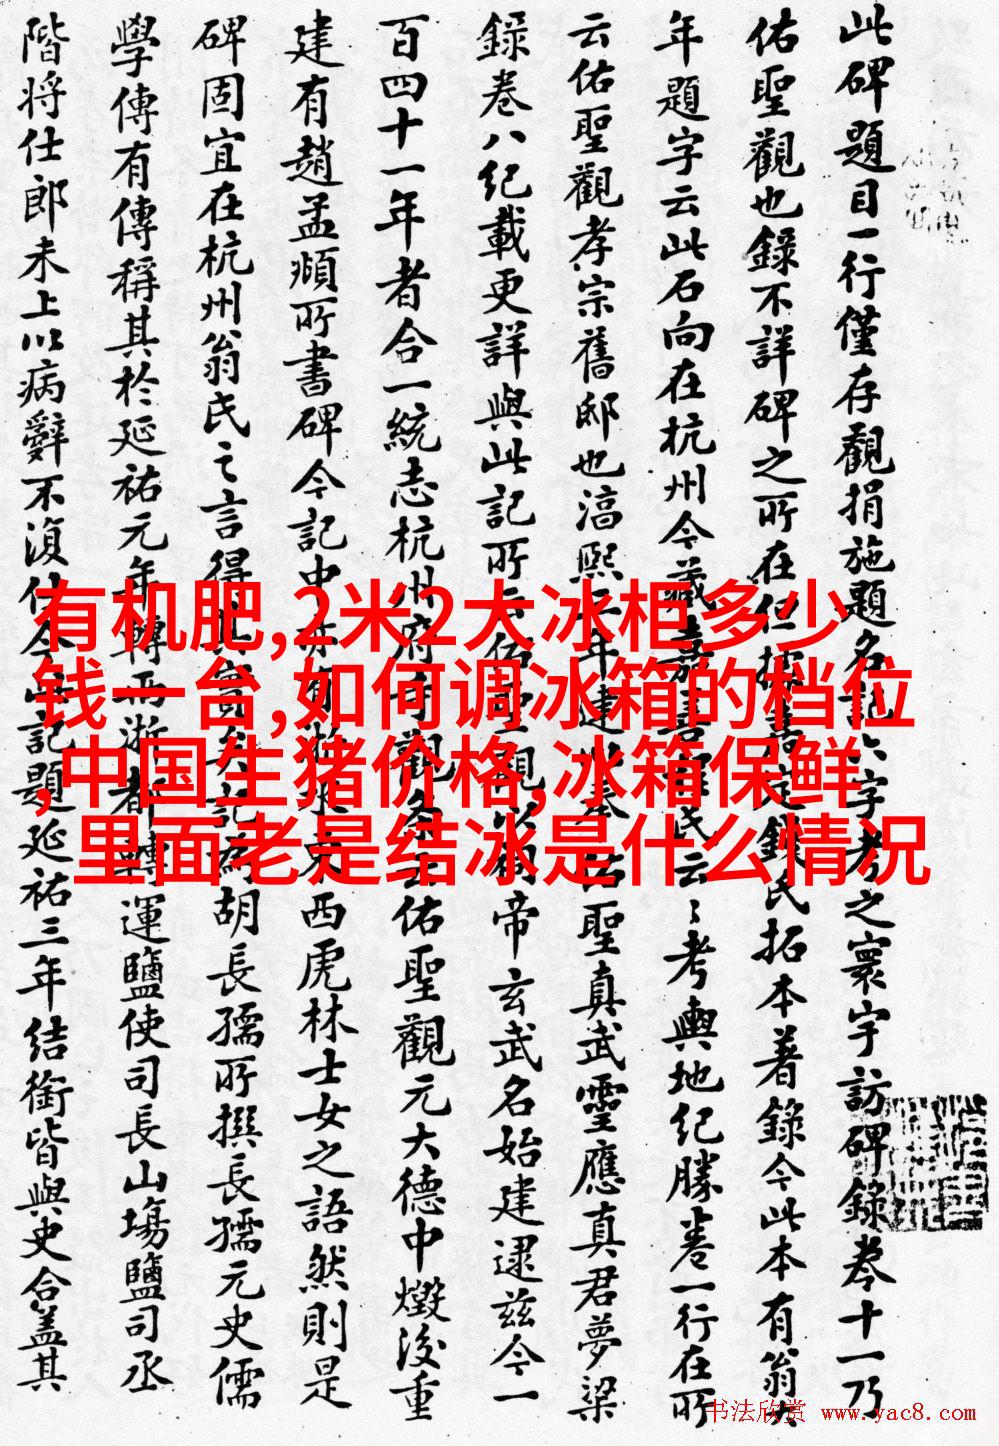 此碑題目一行僅存觀捐施題名記六字考之寰宇訪碑錄卷十一乃
佑聖觀也錄不詳碑之所在但據嘉定錢氏拓本著錄今此本有翁大
年題字云此石向在杭州今藏嘉善氏云〻考輿地紀勝卷一行在所
云佑聖觀孝宗舊邸也淳熙三年建以奉佑聖真武靈應真君夢梁
錄卷八紀載更詳與此記所云佑聖觀以祠帝玄武名始建逮茲今一
百四十一年者合一統志杭州府寺觀条云佑聖觀元大德中燬後重
建有趙孟頫所書碑今記中亦有東西虎林士女之語然則是
碑固宜在杭州翁氏之言得其實矣記為胡長孺所撰長孺元史儒
學傳有傳稱其於延祐元年轉兩浙都轉運鹽使司長山場鹽司丞
階將仕郎未上以病辭不復仕今此記題延祐三年結銜皆與史合蓋其
有机肥,2米2大冰柜多少
钱一台,如何调冰箱的档位
,中国生猪价格,冰箱保鲜
里面老是结冰是什么情况
书法欣赏 www.yac8.com